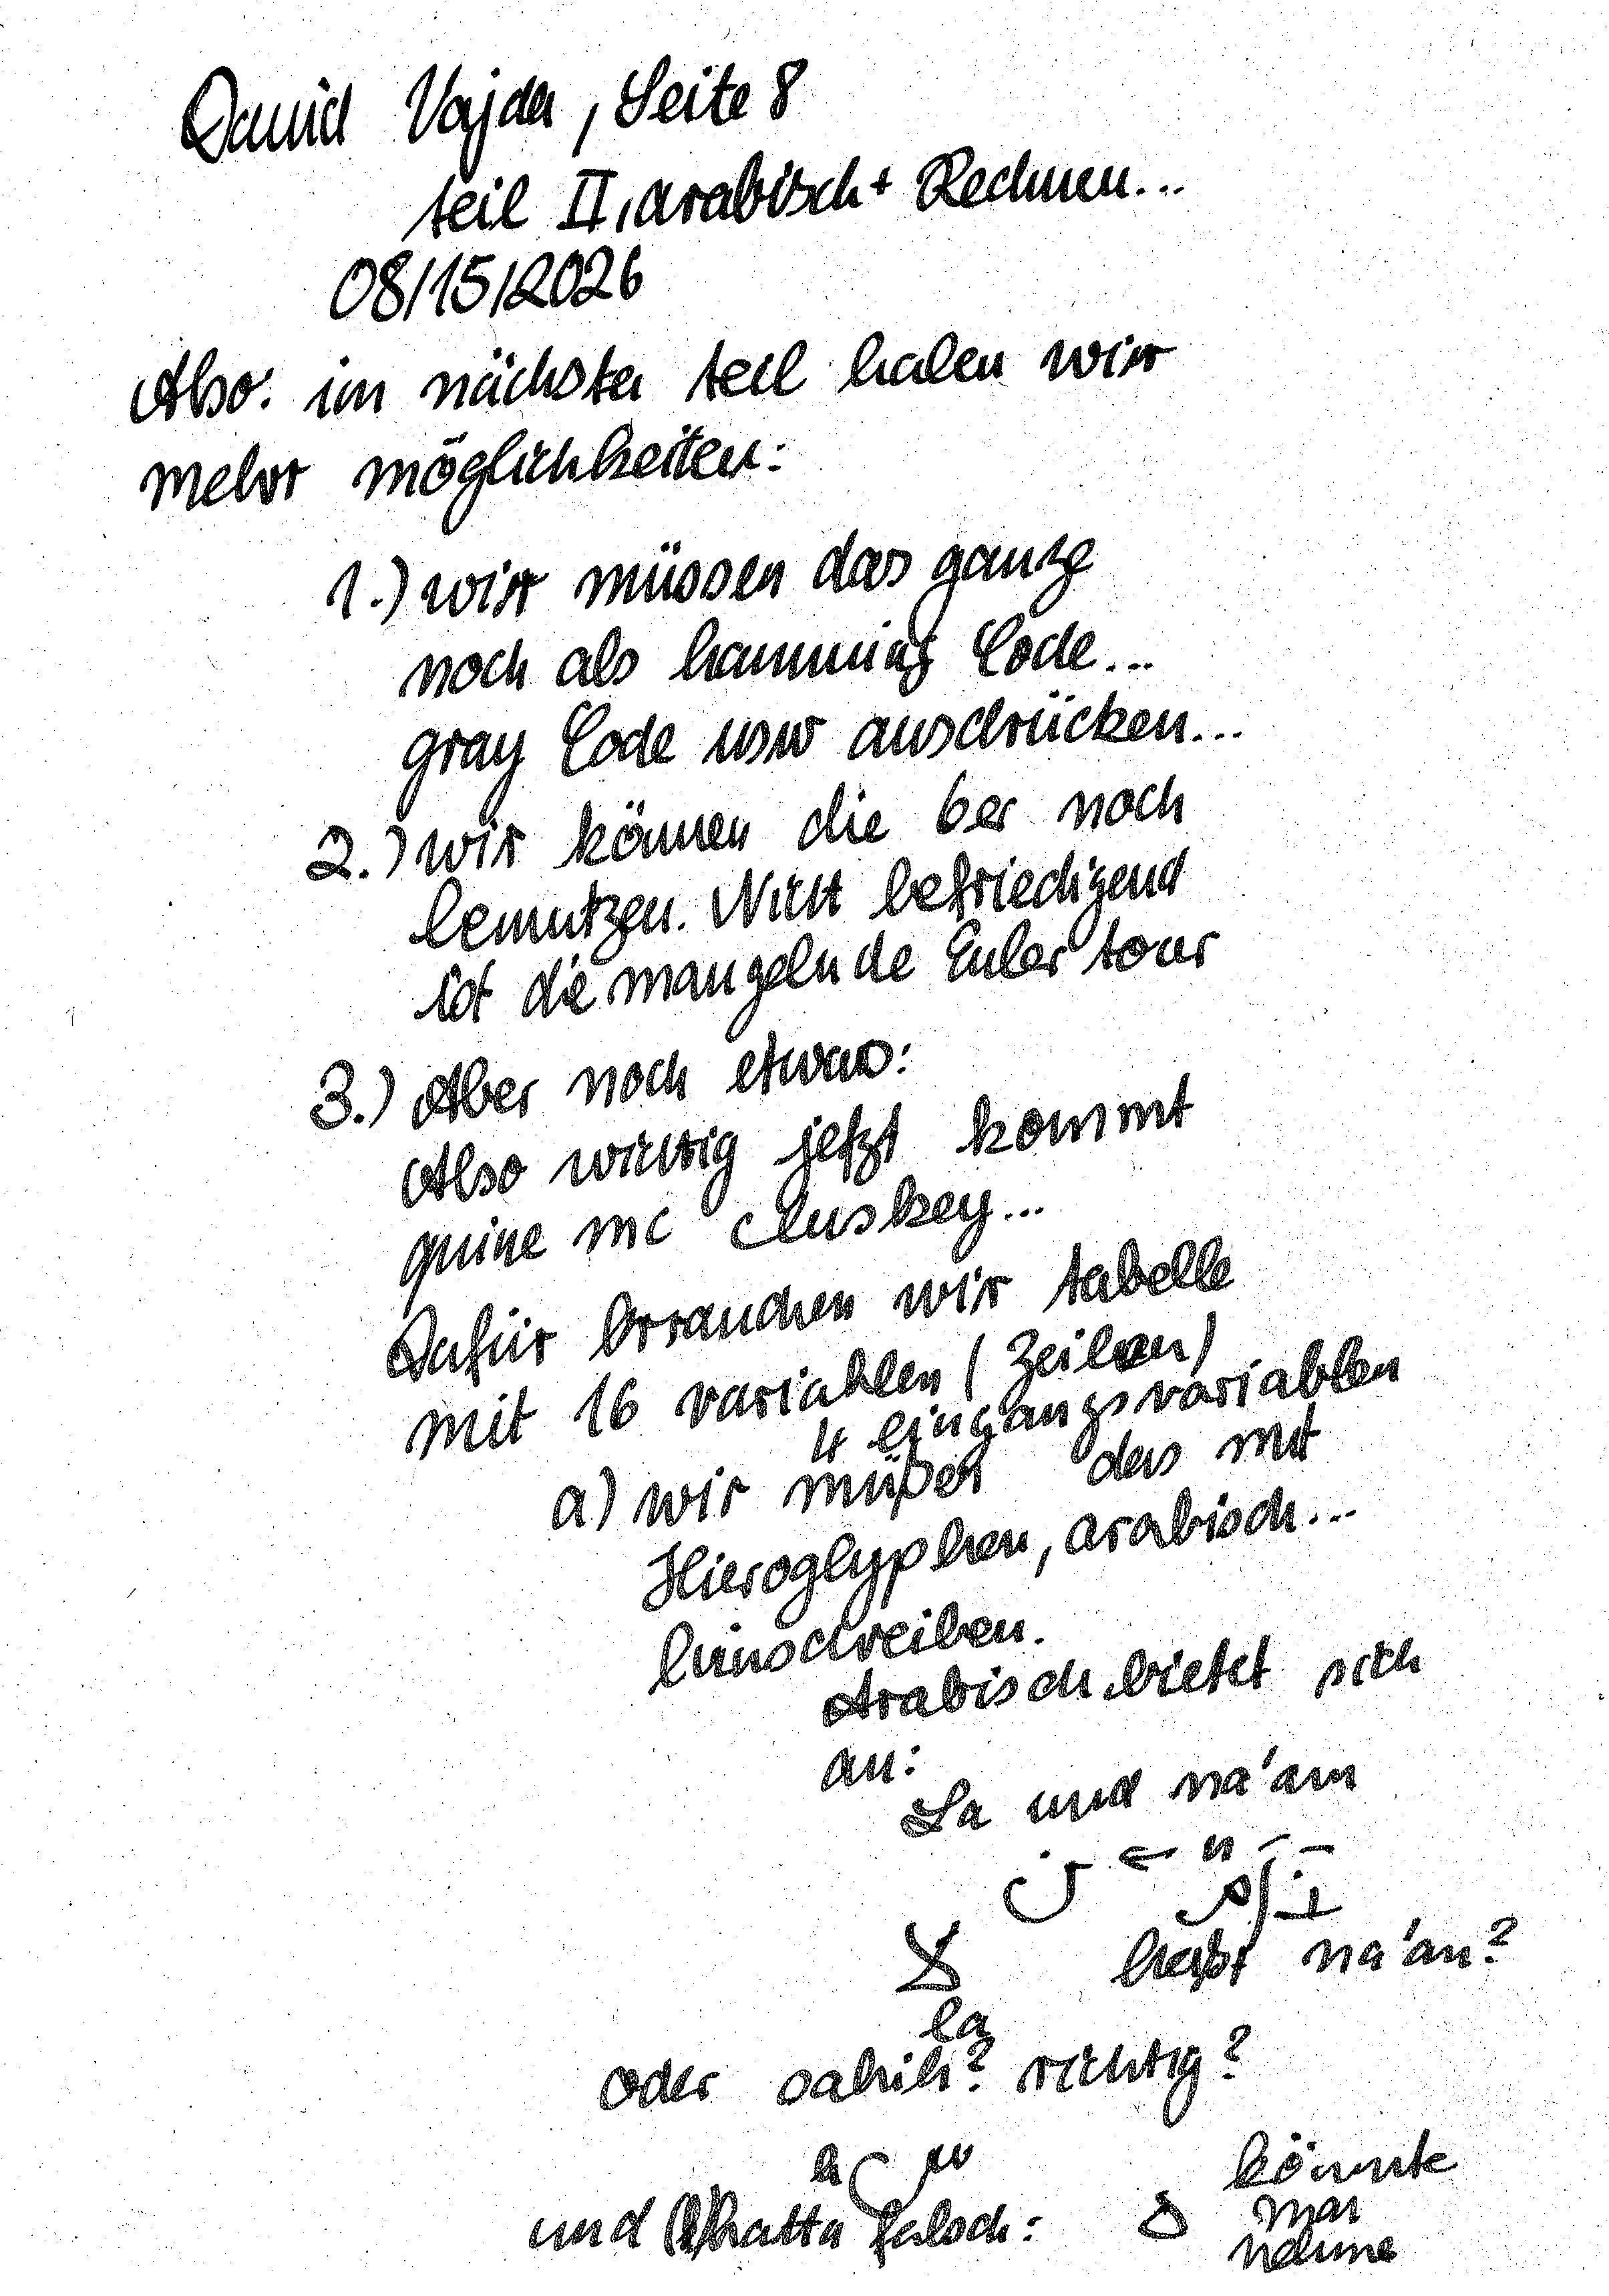 David Vajda, Seite 8
teil II, arabisch + Rechnen...
08/15/2026
Also: im nächsten teil haben wir
mehr möglichkeiten:
1.) wir müssen das ganze
noch als hamming Code...
gray Code usw ausdrücken...
2.) wir können die 6er noch
benutzen. Nicht befriedigend
ist die mangelnde Euler tour
3.) Aber noch etwas:
Also wichtig jetzt kommt
quine mc cluskey...
Dafür brauchen wir tabelle
mit 16 variablen (Zeilen)
4 eingangsvariablen
a) wir müßen das mit
Hieroglyphen, arabisch...
hinschreiben.
Arabisch bietet sich
an:
La und na'am
ن ← n
لا heißt na'an?
la
oder sahih? richtig?
und khatta falsch: ه könnte
man
nehme